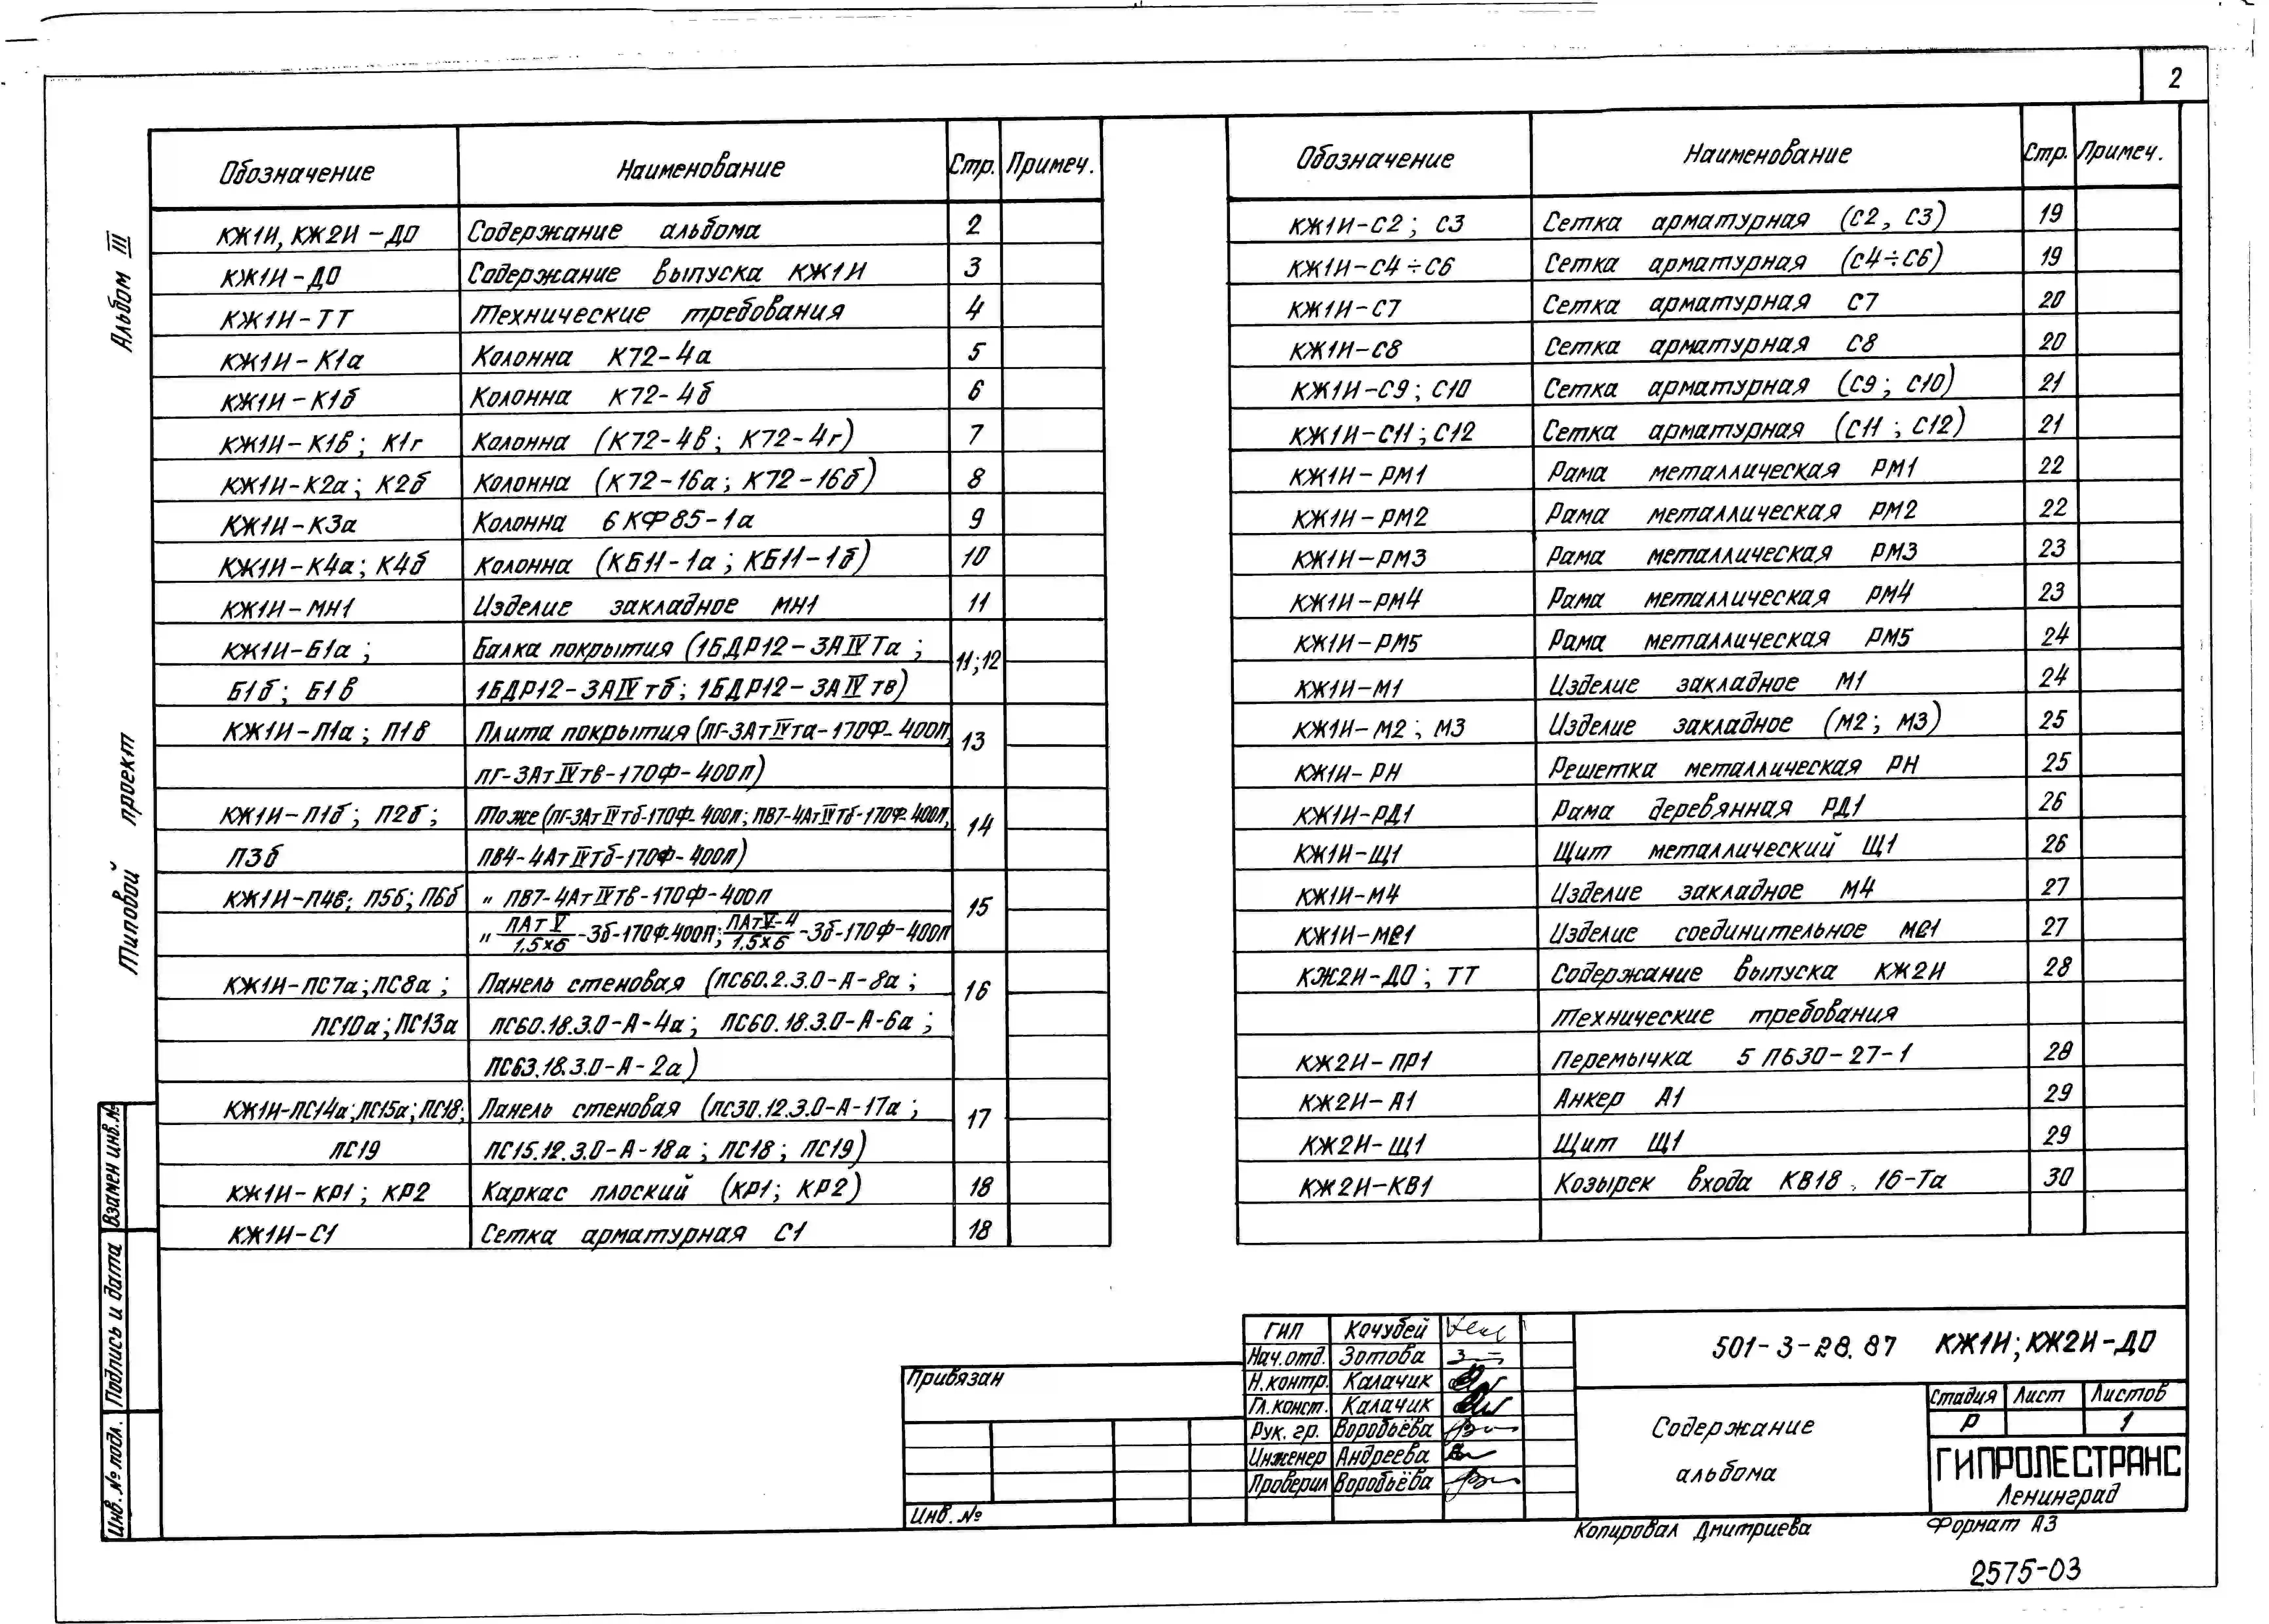 2
Альбом III
Типовой проект
Обозначение Наименование Стр. Примеч.
КЖ1И, КЖ2И-ДО Содержание альбома 2
КЖ1И-ДО Содержание выпуска КЖ1И 3
КЖ1И-ТТ Технические требования 4
КЖ1И-К1а Колонна К72-4а 5
КЖ1И-К1б Колонна К72-4б 6
КЖ1И-К1в; К1г Колонна (К72-4в; К72-4г) 7
КЖ1И-К2а; К2б Колонна (К72-16а; К72-16б) 8
КЖ1И-К3а Колонна 6КФ85-1а 9
КЖ1И-К4а; К4б Колонна (КБ11-1а; КБ11-1б) 10
КЖ1И-МН1 Изделие закладное МН1 11
КЖ1И-Б1а; Балка покрытия (1БДР12-3АIVТа; 11;12
Б1б; Б1в 1БДР12-3АIVтб; 1БДР12-3АIVтв)
КЖ1И-П1а; П1в Плита покрытия (пг-3АтIVта-170Ф-400п, 13
пг-3АтIVтв-170Ф-400п)
КЖ1И-П1б; П2б; То же (пг-3АтIVтб-170Ф-400п; ПВ7-4АтIVтб-170Ф-400п, 14
П3б ПВ4-4АтIVтб-170Ф-400п)
КЖ1И-П4в; П5б; П6б " ПВ7-4АтIVТв-170Ф-400п 15
" ПАтV/1,5х6-3б-170Ф-400п; ПАтV-4/1,5х6-3б-170Ф-400п
КЖ1И-ПС7а; ПС8а; Панель стеновая (ПС60.2.3.0-А-8а; 16
ПС10а; ПС13а ПС60.18.3.0-А-4а; ПС60.18.3.0-А-6а;
ПС63.18.3.0-А-2а)
КЖ1И-ПС14а; ПС15а; ПС18; Панель стеновая (пс30.12.3.0-А-17а; 17
ПС19 ПС15.12.3.0-А-18а; ПС18; ПС19)
КЖ1И-КР1; КР2 Каркас плоский (КР1; КР2) 18
КЖ1И-С1 Сетка арматурная С1 18
Обозначение Наименование Стр. Примеч.
КЖ1И-С2; С3 Сетка арматурная (С2, С3) 19
КЖ1И-С4÷С6 Сетка арматурная (С4÷С6) 19
КЖ1И-С7 Сетка арматурная С7 20
КЖ1И-С8 Сетка арматурная С8 20
КЖ1И-С9; С10 Сетка арматурная (С9; С10) 21
КЖ1И-С11; С12 Сетка арматурная (С11; С12) 21
КЖ1И-РМ1 Рама металлическая РМ1 22
КЖ1И-РМ2 Рама металлическая РМ2 22
КЖ1И-РМ3 Рама металлическая РМ3 23
КЖ1И-РМ4 Рама металлическая РМ4 23
КЖ1И-РМ5 Рама металлическая РМ5 24
КЖ1И-М1 Изделие закладное М1 24
КЖ1И-М2; М3 Изделие закладное (М2; М3) 25
КЖ1И-РН Решетка металлическая РН 25
КЖ1И-РД1 Рама деревянная РД1 26
КЖ1И-Щ1 Щит металлический Щ1 26
КЖ1И-М4 Изделие закладное М4 27
КЖ1И-МС1 Изделие соединительное МС1 27
КЖ2И-ДО; ТТ Содержание выпуска КЖ2И 28
Технические требования
КЖ2И-ПР1 Перемычка 5ПБ30-27-1 28
КЖ2И-А1 Анкер А1 29
КЖ2И-Щ1 Щит Щ1 29
КЖ2И-КВ1 Козырек входа КВ18.16-Та 30
Взамен инв.№
Подпись и дата
Инв. № подл.
Привязан
Инв. №
ГИП Кочубей
Нач.отд. Зотова
Н.контр. Калачик
Гл.конст. Калачик
Рук. гр. Воробьёва
Инженер Андреева
Проверил Воробьёва
501-3-28.87 КЖ1И; КЖ2И-ДО
Содержание альбома
Стадия Лист Листов
Р 1
ГИПРОЛЕСТРАНС
Ленинград
Копировал Дмитриева Формат А3
2575-03